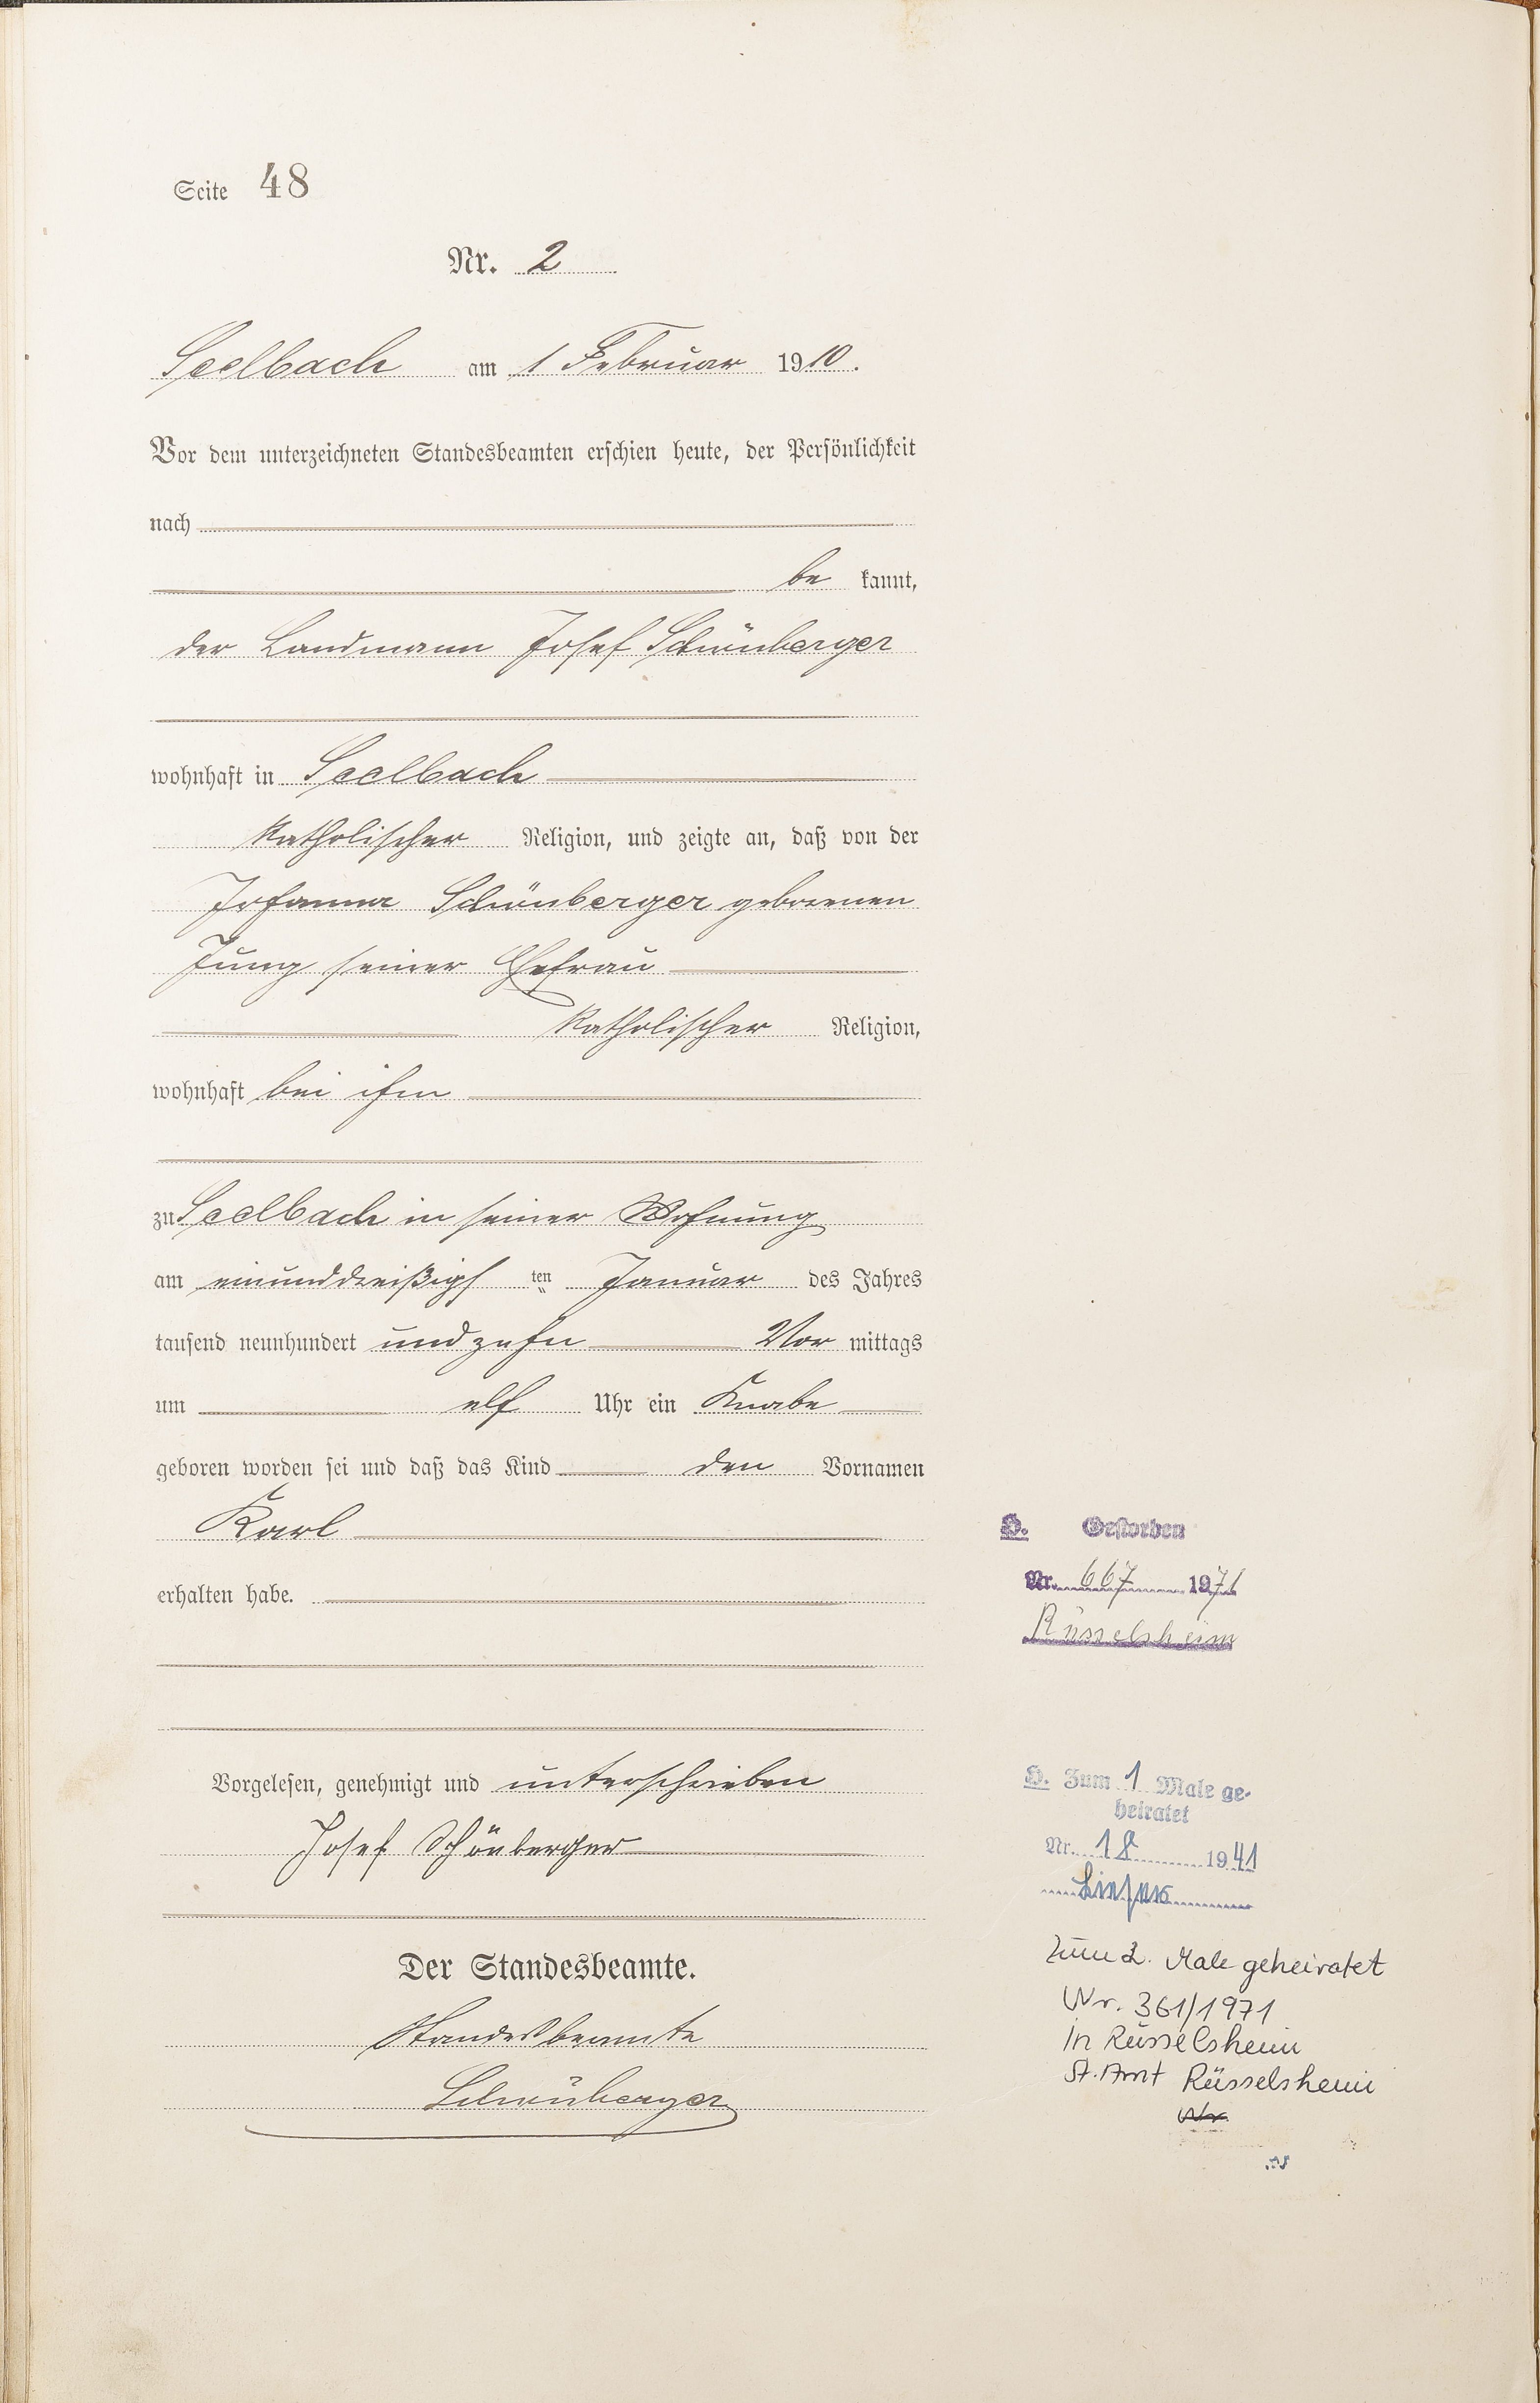 Seite 48
Nr. 2
Seelbach am 1 Februar 1910.
Vor dem unterzeichneten Standesbeamten erschien heute, der Persönlichkeit
nach
be kannt,
der Landmann Josef Schönberger
wohnhaft in Seelbach
katholischer Religion, und zeigte an, daß von der
Johanna Schönberger geborenen
Jung seiner Ehefrau
katholischer Religion,
wohnhaft bei ihm
zu Seelbach in seiner Wohnung
am einunddreißigs ten Januar des Jahres
tausend neunhundert und zehn Vor mittags
um elf Uhr ein Knabe
geboren worden sei und daß das Kind den Vornamen
Karl
erhalten habe.
Vorgelesen, genehmigt und unterschrieben
Josef Schönberger
Der Standesbeamte.
Standesbeamte
Schönberger
H. Gestorben
Nr. 667 1971
Rüsselsheim
H. Zum 1 Male ge-
heiratet
Nr. 18 1941
Zum 2. Male geheiratet
Nr. 361/1971
in Rüsselsheim
St. Amt Rüsselsheim
Nr.